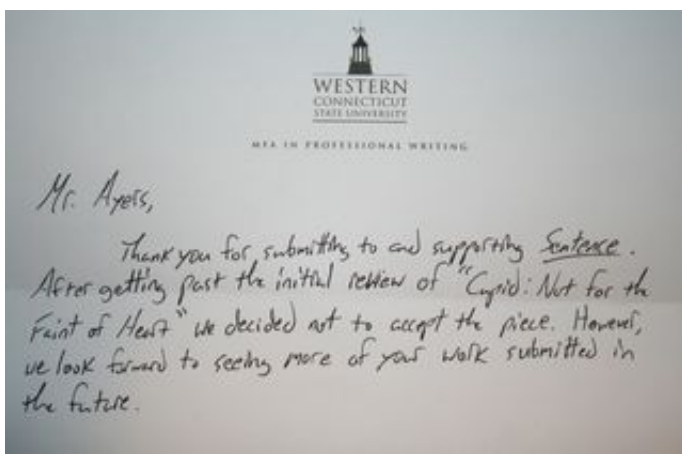 WESTERN
CONNECTICUT
STATE UNIVERSITY
MFA IN PROFESSIONAL WRITING
Mr. Ayers,
Thank you for submitting to and supporting Sentence.
After getting past the initial review of "Cupid: Not for the
Faint of Heart" we decided not to accept the piece. However,
we look forward to seeing more of your work submitted in
the future.